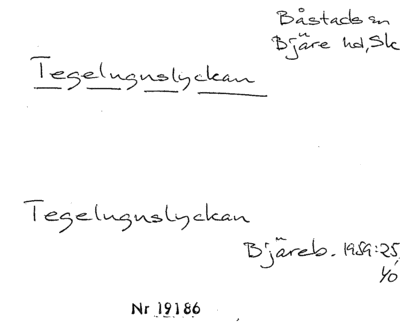 Båstads sn
Bjäre hd, Sk
Tegelugnslyckan
Tegelugnslyckan
Bjäreb. 1959:25,
40
Nr 19186